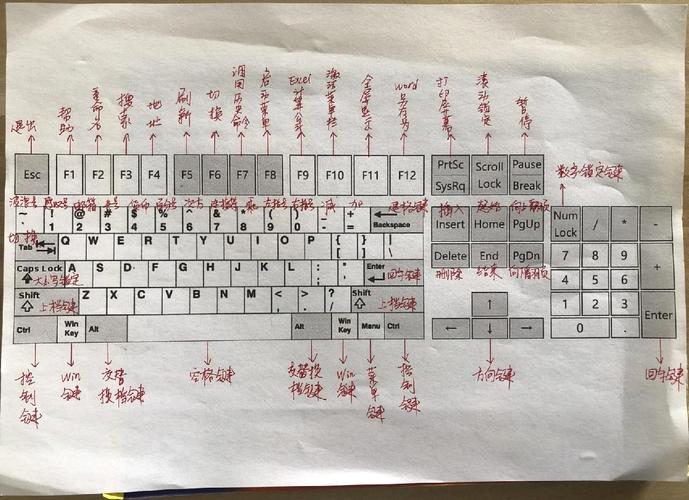 退出 帮助 重命名 搜索 地址 刷新 切换 调用历史命令 启动菜单 Excel计算公式 激活菜单栏 全屏显示 word另存为 打印屏幕 滚动锁定 暂停
Esc F1 F2 F3 F4 F5 F6 F7 F8 F9 F10 F11 F12 PrtSc SysRq Scroll Lock Pause Break
数字锁定键
波浪号 感叹号 邮箱 井号 货币 百分号 次方 连接符 乘 左括号 右括号 减 加 退格键 插入 起始 向上翻页
~ ! @ # $ % ^ & * ( ) _ + Backspace Insert Home PgUp Num Lock / * -
` 1 2 3 4 5 6 7 8 9 0 - =
切换
Tab Q W E R T Y U I O P { [ } ] | \ Delete End PgDn 7 8 9 +
删除 结束 向下翻页
Caps Lock A S D F G H J K L : ; " ' Enter 4 5 6
大小写锁定 回车键
Shift Z X C V B N M < , > . ? / Shift ↑ 1 2 3 Enter
上档键 上档键
Ctrl Win Key Alt Alt Win Key Menu Ctrl ← ↓ → 0 .
控制键 Win键 交替换档键 空格键 交替换档键 Win键 菜单键 控制键 方向键 回车键